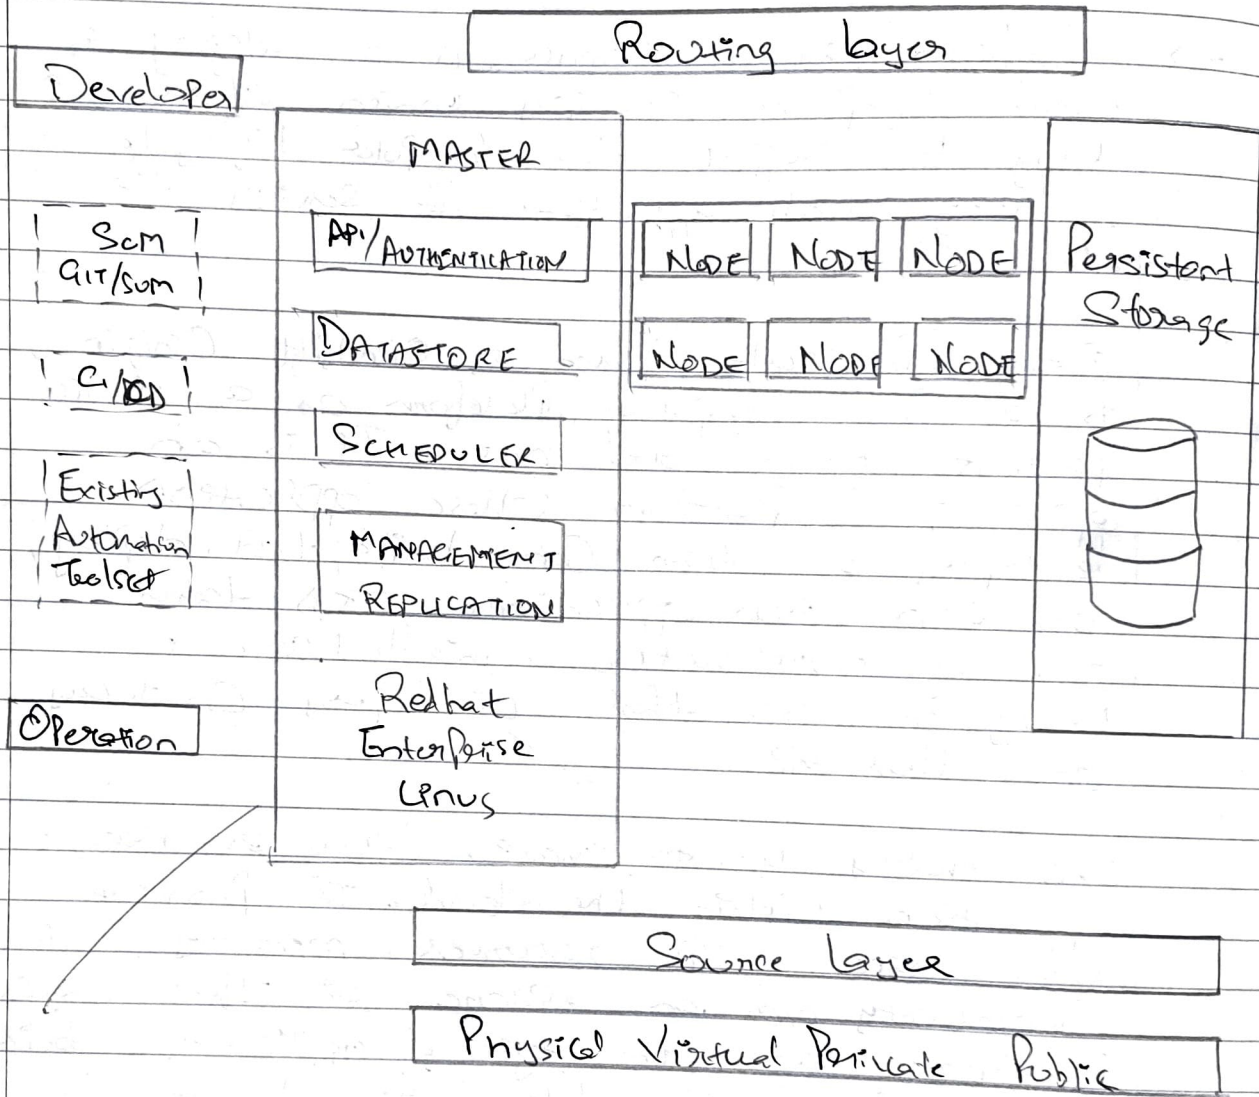 Routing layer
Developer
MASTER
SCM
GIT/SVM
CI/CD
Existing
Automation
Toolset
Operation
API/AUTHENTICATION
DATASTORE
SCHEDULER
MANAGEMENT
REPLICATION
Redhat
Enterprise
Linus
NODE NODE NODE
NODE NODE NODE
Persistant
Storage
Source layer
Physical Virtual Private Public